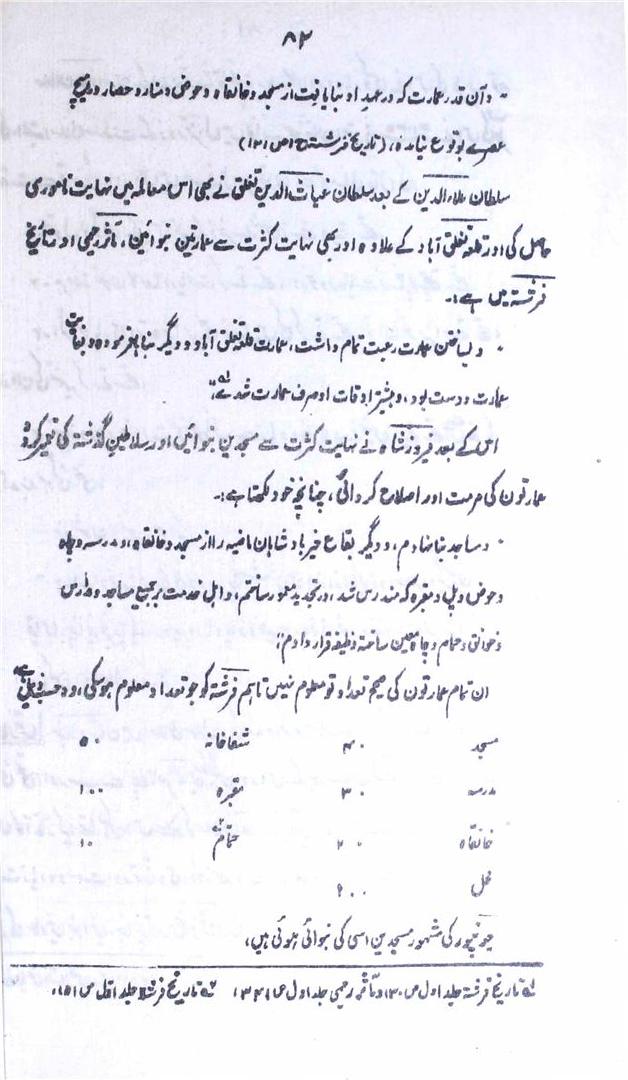 ۸۲
"وآن قدر عمارت که در عهد او بنا یافت از مسجد و خانقاه و حوض و منار و حصار در ہیچ
عصرے بوقوع نیامده، (تاریخ فرشتہ ج ۱ ص ۱۲۱)
سلطان علاء الدین کے بعد سلطان غیاث الدین تغلق نے بھی اس معاملہ میں نہایت ناموری
حاصل کی اور قلعہ تغلق آباد کے علاوہ اور بھی نہایت کثرت سے عمارتین بنوائین، مآثر رحیمی اور تاریخ
فرشتہ میں ہے:۔
"و بساختن عمارت رغبت تمام داشت، عمارت قلعہ تغلق آباد و دیگر بناہا فرموده و
عمارت دوست بود، و بیشتر اوقات او صرف عمارت شدے"
اس کے بعد فیروز شاہ نے نہایت کثرت سے مسجدین بنوائیں اور سلاطین گذشتہ کی تعمیر کردہ
عمارتون کی مرمت اور اصلاح کروائی، چنانچہ خود لکھتا ہے:۔
"مساجد بنا نهادم، و دیگر بقاع خیر پادشاہان ماضیہ را از مسجد و خانقاه، و مدرسہ و چاه
و حوض و پل و مقبره کہ مندرس شد، در تجدید معمور ساختم، و اہل خدمت بر جمیع مساجد و مدارس
و خوانق و حمام و چاه معین ساختہ وظیفہ قرار دادم،
ان تمام عمارتون کی صحیح تعداد تو معلوم نہیں تاہم فرشتہ کو جو تعداد معلوم ہو سکی، وہ حسب ذیل ہے
مسجد ۴۰ شفاخانہ ۵۰
مدرسہ ۳۰ مقبرہ ۱۰۰
خانقاہ ۲۰ حمام ۱۰
محل ۲۰۰
جونپور کی مشہور مسجدین اسی کی بنوائی ہوئی ہیں،
لہ تاریخ فرشتہ جلد اول ص ۱۳۰ و مآثر رحیمی جلد اول ص ۳۴۱ ۲ہ تاریخ فرشتہ جلد اول ص ۱۵۱،